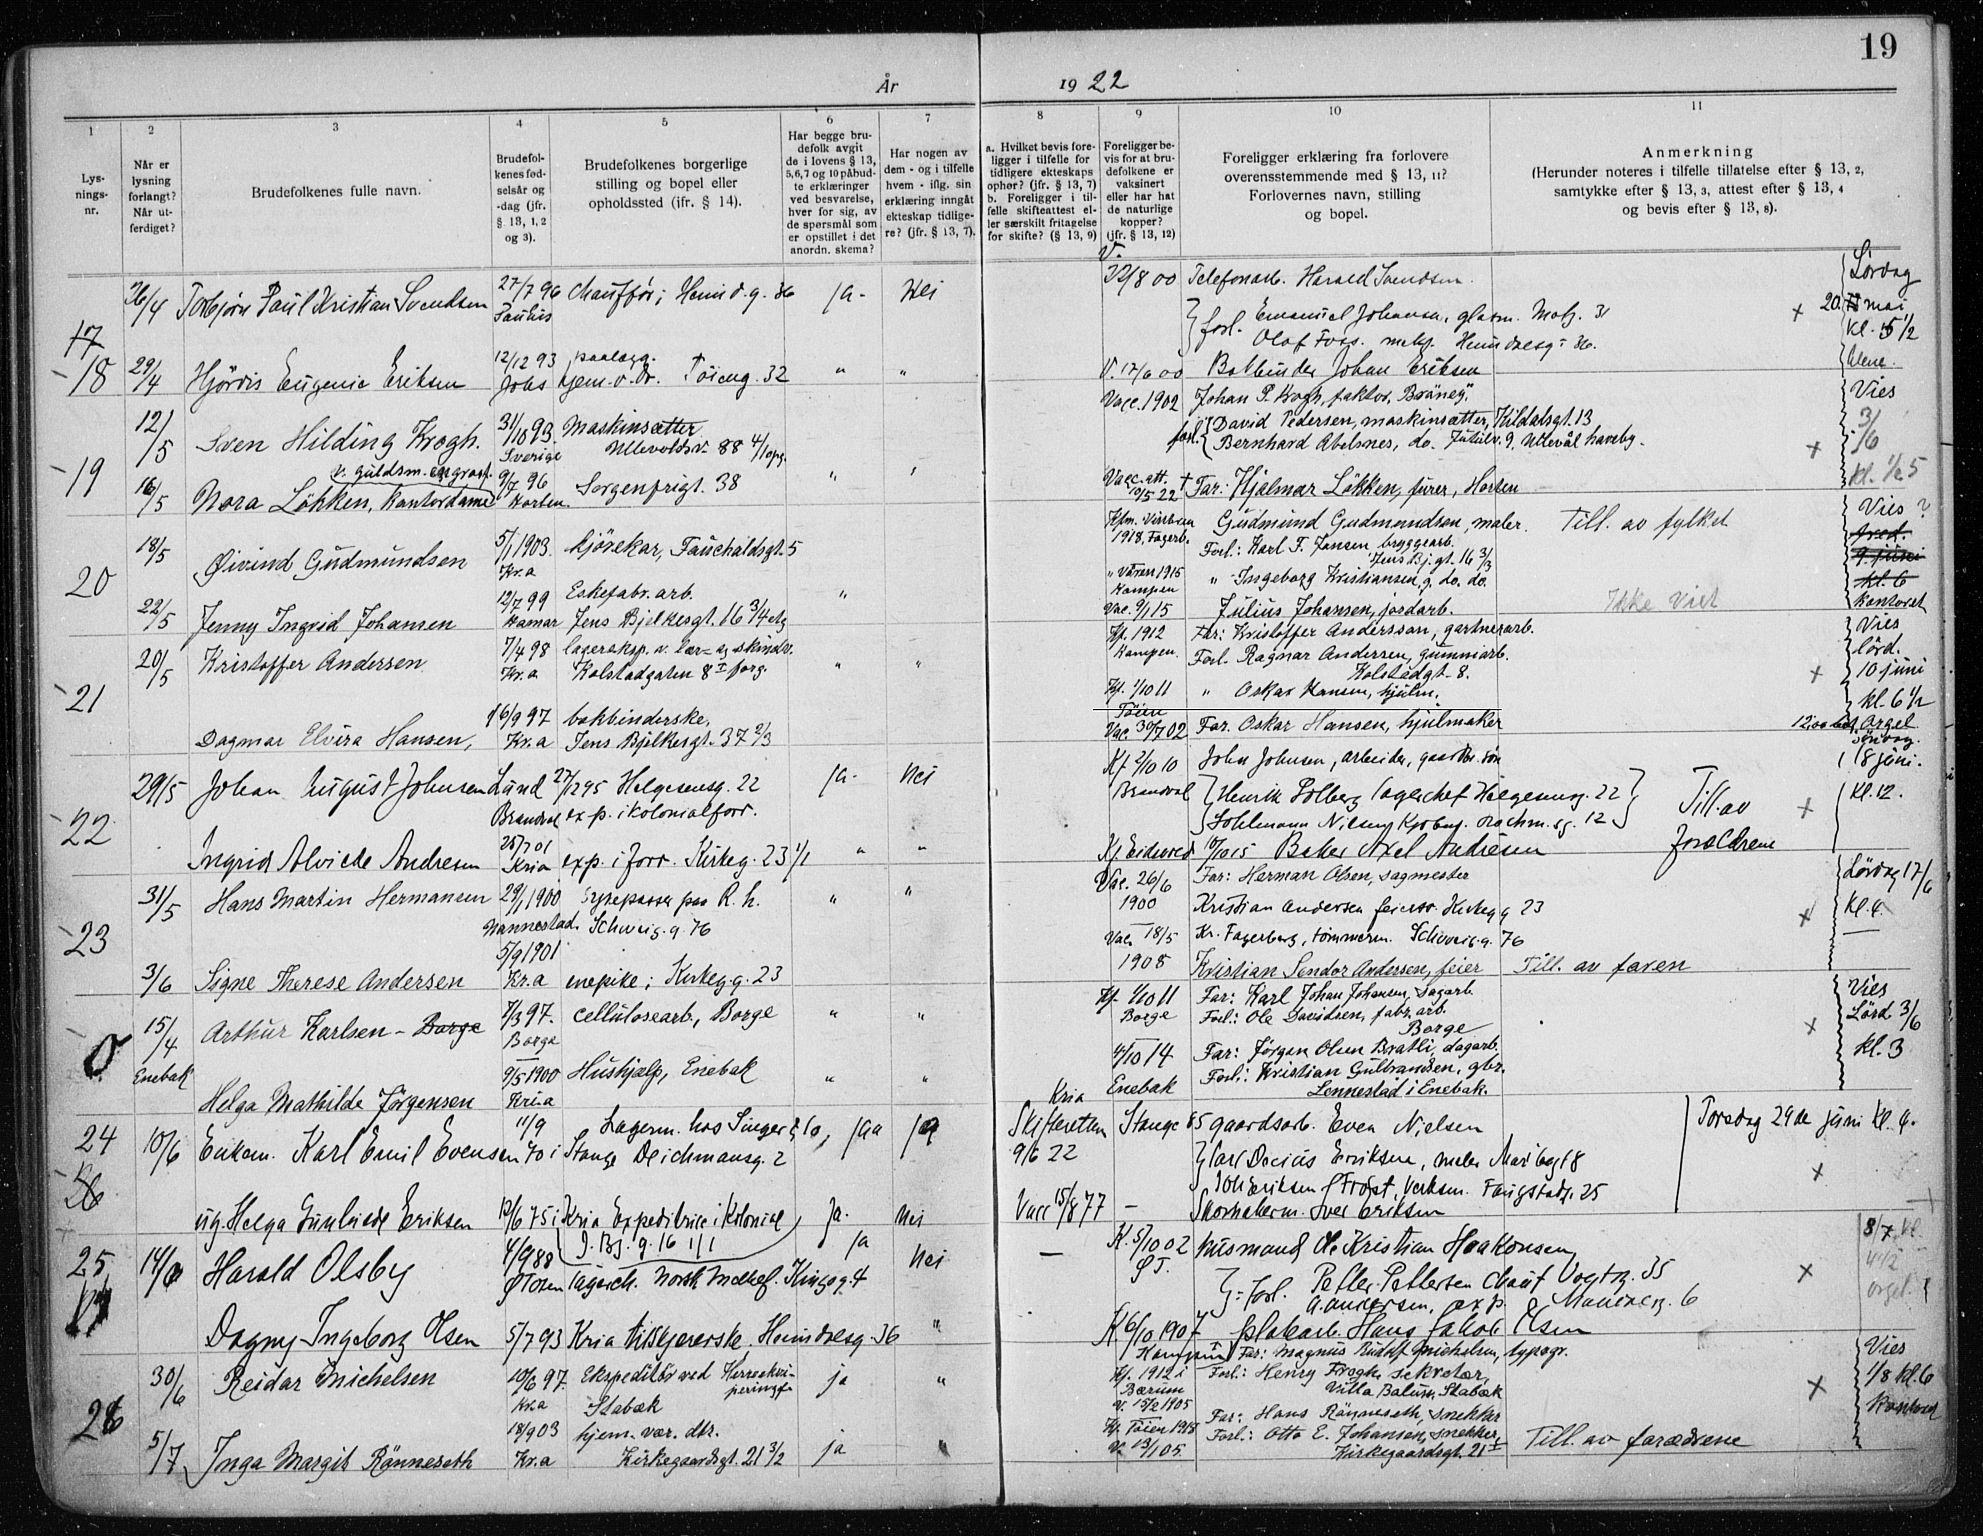 19
År 1922
1 2 3 4 5 6 7 8 9 10 11
Lysningsnr.
Når er lysning forlangt? Når utferdiget?
Brudefolkenes fulle navn.
Brudefolkenes fødselsår og -dag (jfr. § 13, 1, 2 og 3).
Brudefolkenes borgerlige stilling og bopel eller opholdssted (ifr. § 14).
Har begge brudefolk avgit de i lovens § 13, 5,6,7 og 10 påbudte erklæringer ved besvarelse, hver for sig, av de spørsmål som er opstillet i det anordn. skema?
Har nogen av dem - og i tilfelle hvem - iflg. sin erklæring inngåt ekteskap tidligere? (jfr. § 13, 7).
a. Hvilket bevis foreligger i tilfelle for tidligere ekteskaps ophør? (jfr. § 13, 7) b. Foreligger i tilfelle skifteattest eller særskilt fritagelse for skifte? (§ 13, 9)
Foreligger bevis for at brudefolkene er vaksinert eller har hat de naturlige kopper? (jfr. § 13, 12)
Foreligger erklæring fra forlovere overensstemmende med § 13, 11? Forlovernes navn, stilling og bopel.
Anmerkning (Herunder noteres i tilfelle tillatelse efter § 13, 2, samtykke efter § 13, 3, attest efter § 13, 4 og bevis efter § 13, 8).
26/4 Torbjørn Paul Kristian Svendsen 27/7 96 Chauffør; ja. Nei V. 22/8 00 Telefonarb. Harald Svendsen. Lørdag
17 forl. Emanuel Johansen, Motz. 31 × 20. mai
Olof Foss. kl. 5 1/2
18 29/4 Hjördis Eugenie Eriksen 12/12 93 Töieng. 32 " " V. 17/6 00 Bokbinder Johan Eriksen Alene.
12/5 Sven Hilding Krogh. 31/10 93. Sverige Maskinsætter Ullevoldsv. 88 4/1 opg. Vacc. 1902 Johan P. Krogh, faktor, Vies
forl. David Pedersen, maskinsætter, Kildalsgt. 13 3/6
Bernhard Abelsnes, do. 9, Ullevål haveby. × kl. 1/2 5
19 16/5 Nora Løkken, kontordame v. guldsm. 9/7 96 Horten Sorgenfrigt. 38 " Vacc. att. 10/5 22 Far: Hjalmar Løkken, furer, Horten
18/5 Øivind Gudmundsen 5/1 1903. Kr.a Kjørekar, Fauchaldsgt. 5 1918, Fagerb. Gudmund Gudmundsen, maler. Till. av fylket Vies ?
20 Forl.: Karl F. Jansen bryggearb. Jens Bj. gt. 16 3/3 9. juni
" Ingeborg Kristiansen, g. do. do. kl. 6
22/5 Jenny Ingrid Johansen 12/7 99 Hamar Eskefabr. arb. Jens Bjelkesgt. 16 3/4 etg " Vac. 9/1 15 Julius Johansen, jordarb. Ikke viet kontoret
20/5 Kristoffer Andersen 7/4 98 Kr.a lagereksp. v. lær- og skindv. Kolstadgaten 8 I " " Kf. 1912 Kampen. Far: Kristoffer Andersson, gartnerarb. Vies
Forl. Ragnar Andersen, gummiarb. Kolstadgt. 8. lörd. 10 juni
21 Kf. 1/10 11 Töien " Oskar Hansen, hjulm. × kl. 6 1/2
Dagmar Elvira Hansen, 16/9 97 Kr.a bokbinderske, Jens Bjelkesgt. 37 2/3 Vac. 30/7 02 Far. Oskar Hansen, hjulmaker Orgel
29/5 Johan August Johnsen Lund 27/12 95 Brandval Helgesensg. 22 exp. i kolonialforr. ja. Nei Kf 2/10 10 Brandval John Johnsen, arbeider, Søndag 18 juni.
22 Henrik Solberg lagerchef Helgesensg. 22 Till. av × Kl. 12.
Nilsen 12
Ingrid Alvilde Andresen 25/7 01 Kria exp. i forr. Kirkeg. 23 1/1 " " Kf. Eidsvold 10/10 15 Baker Axel Andresen foreldrene
31/5 Hans Martin Hermansen 29/1 1900 Nannestad. Sypepasser paa R. h. Schweig. g. 76 " " Vac. 26/6 1900 Far: Herman Olsen, sagmester Lørdag 17/6
23 Kristian Andersen Kirkeg g 23 × Kl. 4.
Vac. 18/5 1908 Kr. Fagerberg, tömmerm. Schweig. g. 76
3/6 Signe Therese Andersen 5/9 1901 Kr.a enepike; Kirkeg. g. 23 Kristian Sendor Andersen, feier Till. av faren
0 15/4 Enebak Arthur Karlsen - Borge 7/3 97. Borge Cellulosearb., Borge " " Kf. 1/10 11 Borge Far: Karl Johan Johansen, sagarb. Vies
Forl.: Ole Davidsen, fabr. arb. Borge × Lörd. 3/6
Helga Mathilde Jörgensen 9/5 1900 Kria Hushjælp, Enebak " " 4/10 14 Enebak Far: Jörgen Olsen Bratli, dagarb. kl. 3
Forl.: Kristian Gulbrandsen, gbr. Lennestad i Enebak.
24 10/6 Enkem. Karl Emil Evensen 11/9 70 i Stange Lagerm. hos Singer & Co, Deichmansg. 2 jaa ja Kria Skifteretten 9/6 22 Stange 85 gaardsarb. Even Nielsen Torsdag 29de juni kl. 4.
Carl Eriksen, maler 18 ×
Verksm. 25
ug. Helga Gunhilde Eriksen 13/6 75 i Kria Expeditrice i Kolonial J. Bj. g. 16 1/1 ja. Nei Vacc 15/8 77 — Skomakerm. Iver Eriksen
25 14/6 Harald Olsby 4/9 88 Ø Toten Lagerch. Norsk Mælkef. Kingog. 4 ja Nei — K. 5/10 02 Ø T. Husmand Ole Kristian Haakonsen 8/7 kl
Forl. Petter Pettersen Chauf Vogtsg. 35 × 4 1/2
A. Andersen, exp. 6 orgel.
Dagny Ingeborg Olsen 5/7 93 Kria tilskjærerske, 36 " K 6/10 1907 Hans Jakob Olsen
30/6 Reidar Michelsen 10/6 97. Kra Ekspeditör ved Herreekviperingsf. Stabæk ja " Kf. 1912 i Bærum V. 15/2 1905 Far: Magnus Rudolf Michelsen, typogr. Vies
Forl.: Henry Krogh, sekretær, Villa Stabæk × 1/8 kl. 6
26 5/7 Inga Margit Rønneseth 18/9 03 Kr.a hjem. vær. dtr. Kirkegaardsgt. 21 3/2 ja " Kf. Töien 1918 V. 13/1 05. Far: Hans Rønneseth, snekker Kontoret
Forl.: Otto E. Johansen, snekker, Kirkegaardsgt. 21 I Till. av forældrene